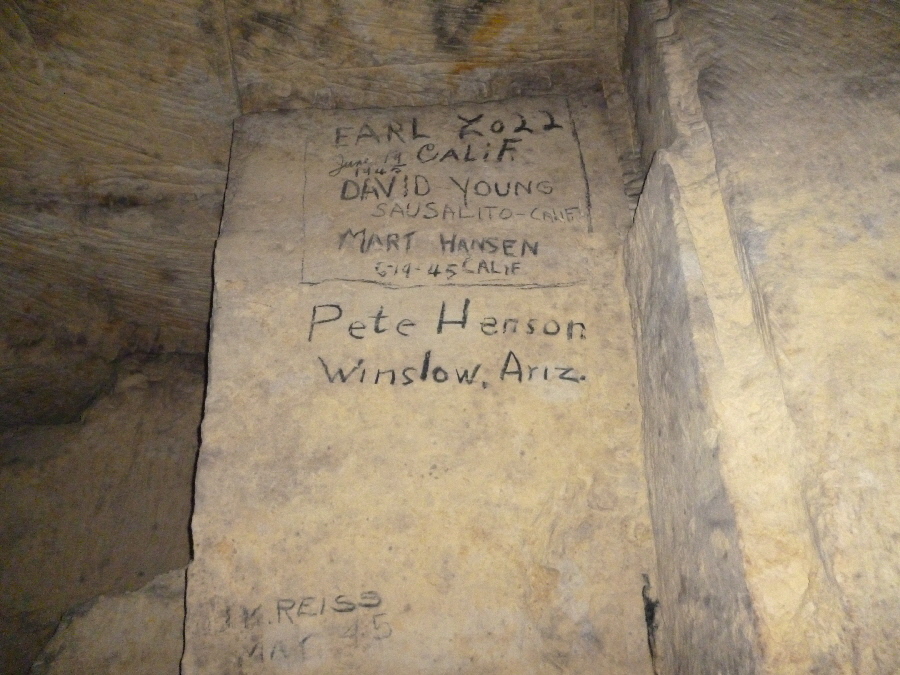 EARL YOZZ
June 19 CALIF.
1945
DAVID YOUNG
SAUSALITO-CALIF
MART HANSEN
6-19-45 CALIF
Pete Henson
Winslow, Ariz.
REISS
MAY 45